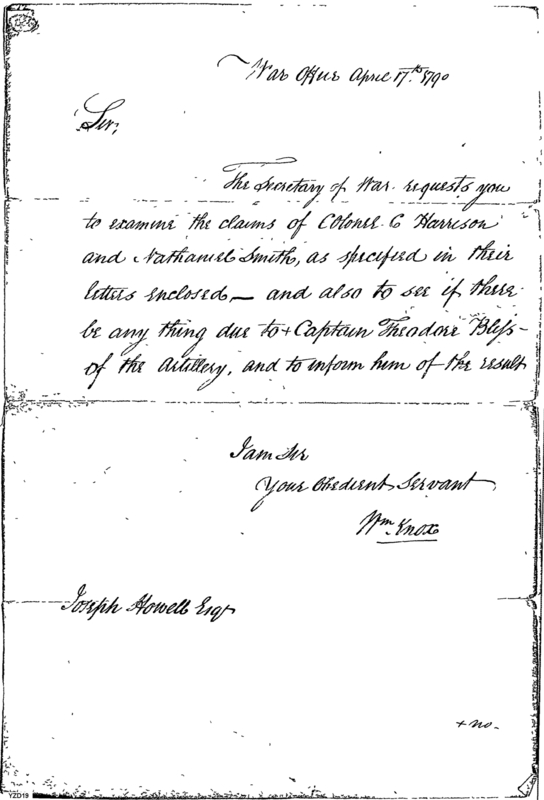 War Office April 17th 1790
Sir,
The Secretary of War requests you
to examine the claims of Colonel C Harrison
and Nathaniel Smith, as specified in their
letters enclosed — and also to see if there
be any thing due to + Captain Theodore Bliss
of the Artillery, and to inform him of the result
I am Sir
Your Obedient Servant
Wm Knox
Joseph Howell Esqr
+ no.
YZD19